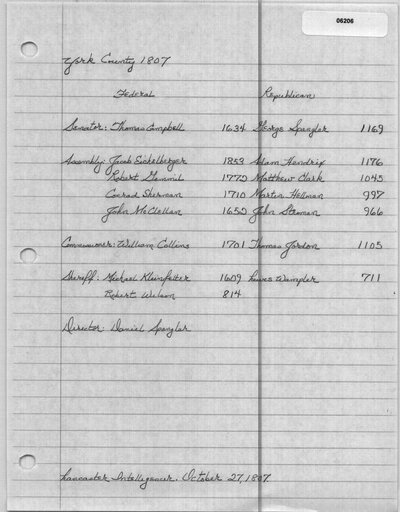 06206
York County 1807
Federal Republican
Senator: Thomas Campbell 1634 George Spangler 1169
Assembly: Jacob Eichelberger 1853 Adam Hendrix 1176
Robert Gemmil 1770 Matthew Clark 1045
Conrad Sherman 1710 Martin Hellman 997
John McClellan 1650 John Steman 966
Commissioner: William Collins 1701 Thomas Jordon 1105
Sheriff: Michael Kleinfelter 1609 Lewes Wampler 711
Robert Wilson 814
Director: Daniel Spangler
Lancaster Intelligencer. October 27, 1807.